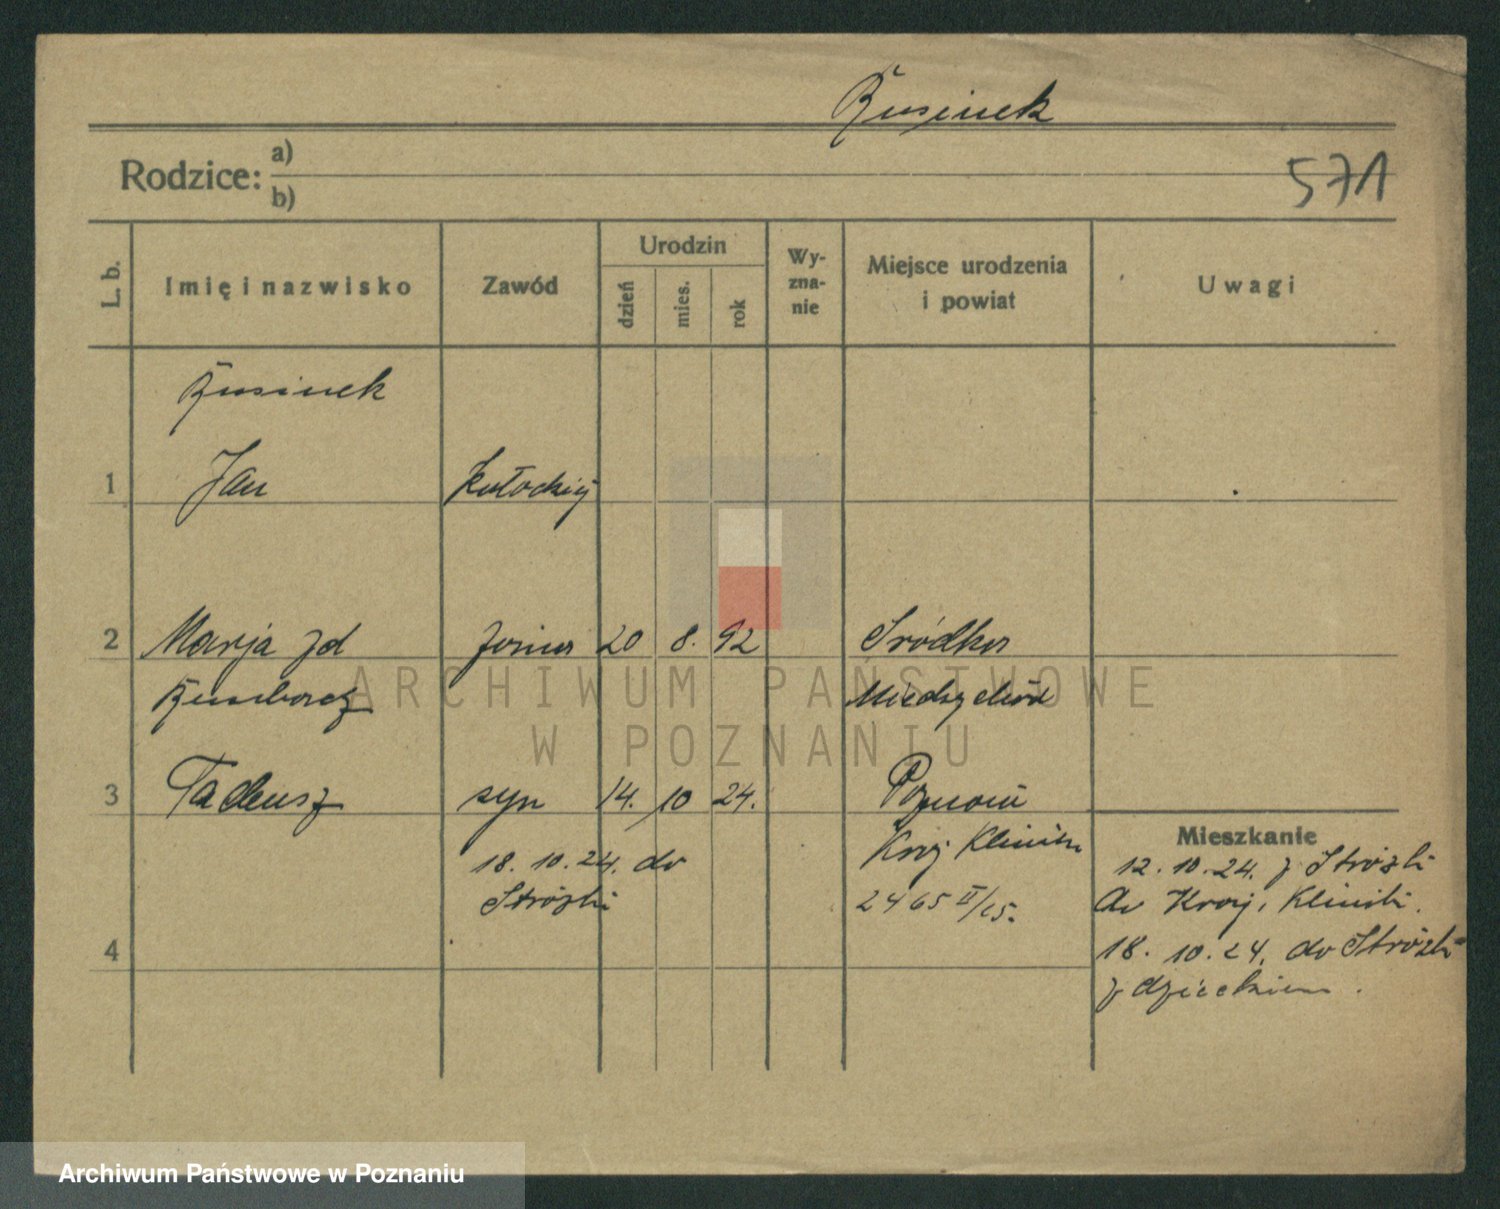 Rusinek
571
Rodzice: a)
b)
L. b.
Imię i nazwisko
Zawód
Urodzin
dzień
mies.
rok
Wy-
zna-
nie
Miejsce urodzenia
i powiat
Uwagi
Rusinek
1 Jan
2 Marja zd żona 20 8. 92 Śródka
Międzychód
3 Tadeusz syn 14. 10 24. Poznań
Kraj Klinika
18. 10. 24. do
Stróżki
2465 II/25.
4
Mieszkanie
12. 10. 24. z Stróżki
do Kraj. Kliniki.
18. 10. 24. do Stróżki
z dzieckiem.
ARCHIWUM PAŃSTWOWE
W POZNANIU
Archiwum Państwowe w Poznaniu